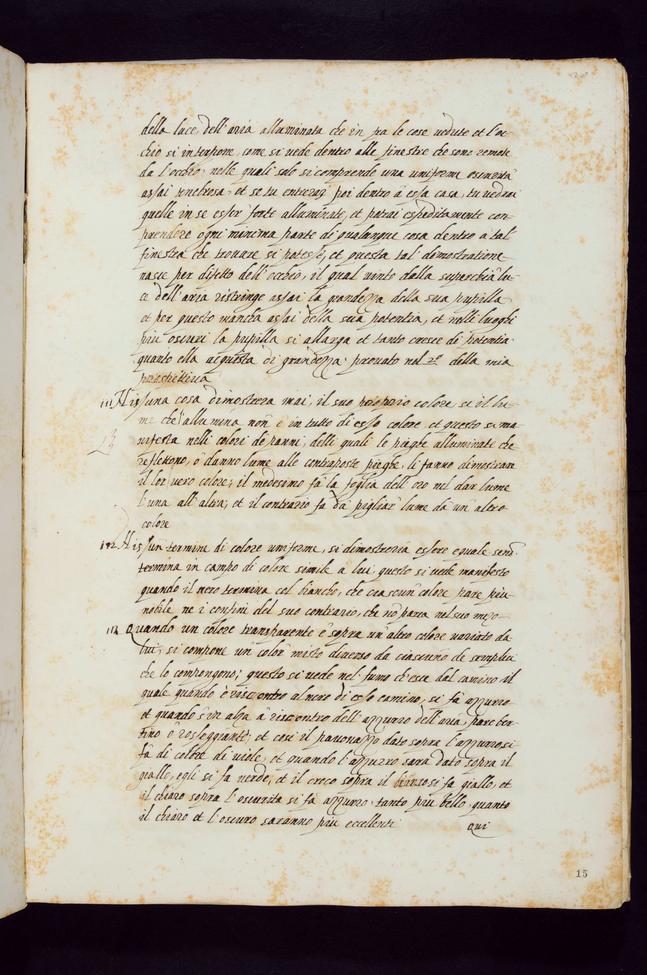 della luce dell'aria alluminata che in fra le cose uedute et l'oc
chio si interpone, come si uede dentro alle finestre che sono remote
da l'occhio, nelle quali solo si comprende una uniforme oscurita
assai tenebrosa, et se tu entrerai poi dentro à essa casa, tu uedrai
quelle in se esser forte alluminate, et potrai espeditamente com
prendere ogni minima parte di qualunque cosa dentro a tal
finestra che trouare si potesse, et questa tal demostratione
nasce per difetto dell'occhio, il qual uinto dalla superchia lu
ce dell'aria ristringe assai la grandezza della sua pupilla
et per questo manca assai della sua potentia, et nelli luoghi
più oscuri la pupilla si allarga et tanto cresce di potentia
quanto ella acquista di grandezza prouato nel 2º della mia
prospettiua
111 Nissuna cosa dimosterra mai, il suo proprio colore, se il lu
me che l'allumina non è in tutto di esso colore, et questo si ma
nifesta nelli colori de panni, delli quali le pieghe alluminate che
reflettono, ò danno lume alle contraposte pieghe, li fanno dimostrare
il lor uero colore, il medesimo fà la foglia dell'oro nel dar lume
l'una all'altra, et il contrario fa da pigliar lume da un altro
colore
112 Nissun termine di colore uniforme, si dimosterra essere equale se nō
termina in campo di colore simile a lui questo si uede manifesto
quando il nero termina col bianco, che ciascun colore pare piu
nobile ne i confini del suo contrario, che nō parra nel suo mezo
113 Quando un colore transparente è sopra un altro colore uariato da
lui, si compone un color misto diuerso da ciascuno de semplici
che lo compongono; questo si uede nel fumo ch'esce dal camino il
quale quando è riscontro al nero di esso camino, si fà azzurro
et quando s'in alza à riscontro dell'azzurro dell'aria, pare ber
tino ò rosseggiante, et cosi il pauonazzo dato sopra l'azzurro si
fà di colore di uiole, et quando l'azzurro sarà dato sopra il
giallo, egli si fa uerde, et il croco sopra il bianco si fa giallo, et
il chiaro sopra l'oscurita si fà azzurro, tanto più bello, quanto
il chiaro et l'oscuro saranno più eccellenti
Qui
15